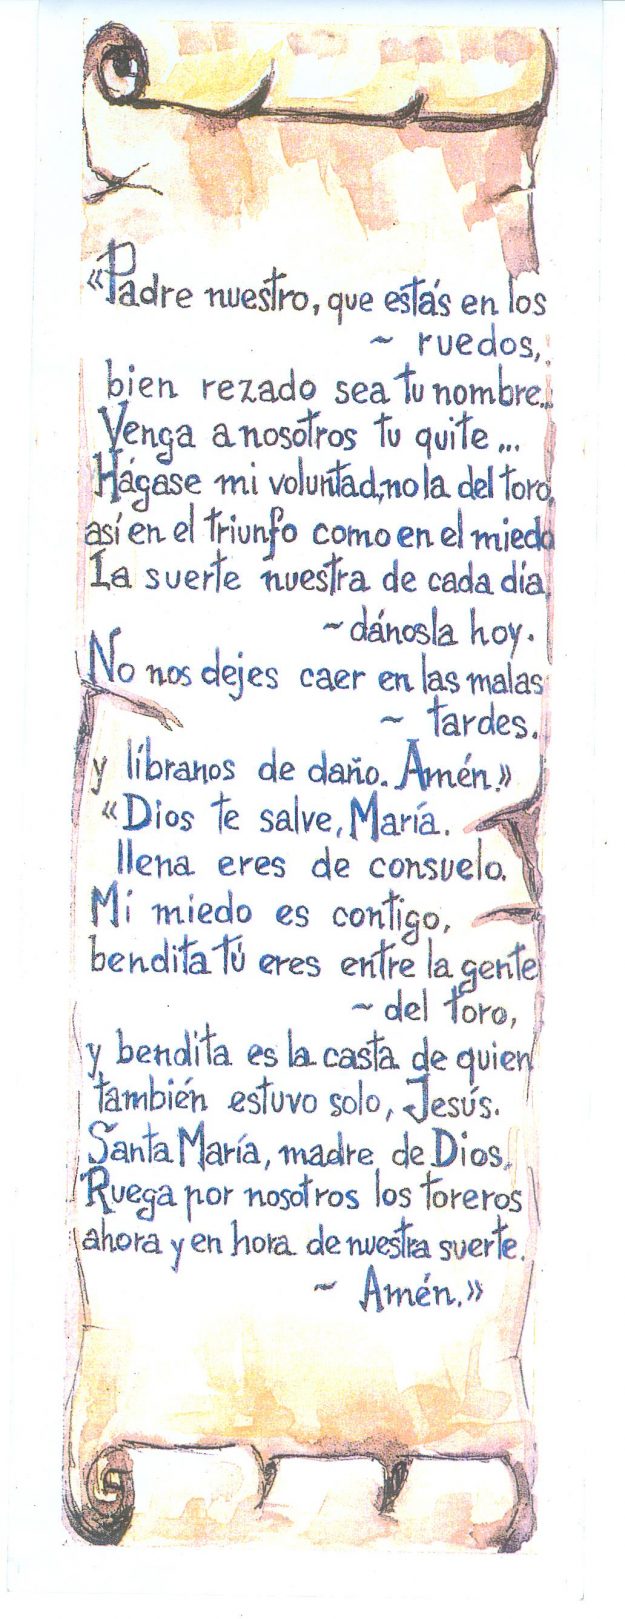 «Padre nuestro, que estás en los
~ ruedos,
bien rezado sea tu nombre...
Venga a nosotros tu quite...
Hágase mi voluntad, no la del toro,
así en el triunfo como en el miedo
La suerte nuestra de cada día,
~ dánosla hoy.
No nos dejes caer en las malas
~ tardes.
y líbranos de daño. Amén.»
«Dios te salve, María.
llena eres de consuelo.
Mi miedo es contigo,
bendita tú eres entre la gente
~ del toro,
y bendita es la casta de quien
también estuvo solo, Jesús.
Santa María, madre de Dios,
Ruega por nosotros los toreros
ahora y en hora de nuestra suerte.
~ Amén.»